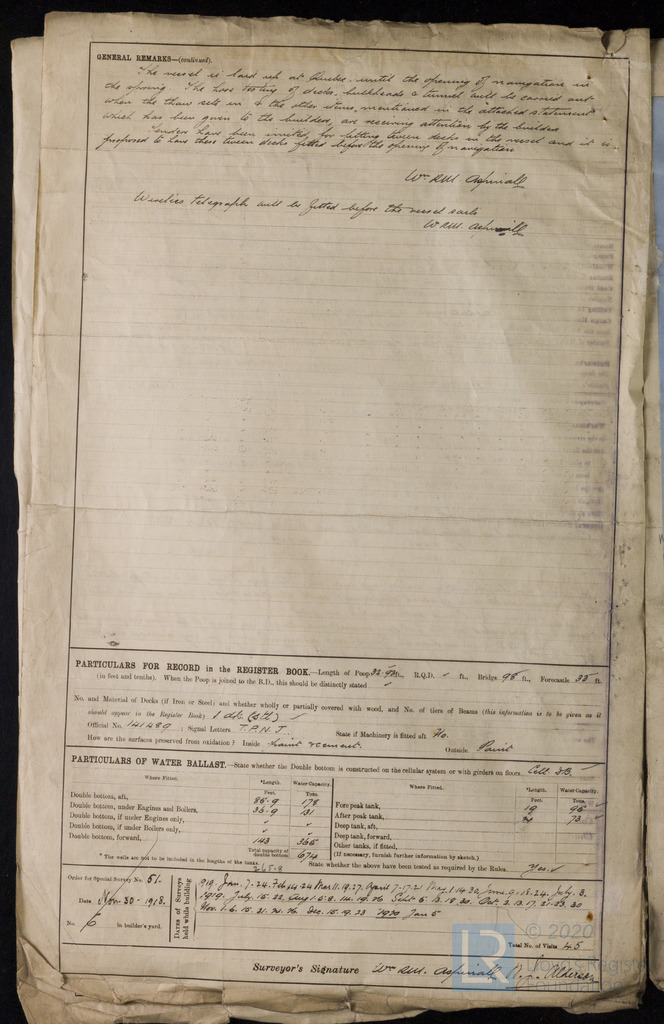 GENERAL REMARKS—(continued).
The vessel is laid up at Quebec until the opening of navigation in
the spring. The hose testing of decks, bulkheads & tunnel will be carried out
when the thaw sets in & the other items, mentioned in the attached statement
which has been given to the builders, are receiving attention by the builders
Tenders have been invited for fitting tween decks in the vessel and it is
proposed to have these tween decks fitted before the opening of navigation
Wm RM. Aspinall
Wireless telegraph will be fitted before the vessel sails
W RM. Aspinall
PARTICULARS FOR RECORD in the REGISTER BOOK.—Length of Poop ft., R.Q.D. ft., Bridge 98 ft., Forecastle 33 ft.
(in feet and tenths). When the Poop is joined to the B.D., this should be distinctly stated
No. and Material of Decks (if Iron or Steel) and whether wholly or partially covered with wood, and No. of tiers of Beams (this information is to be given as it
should appear in the Register Book) 1 dk (stl)
Official No. 141480 ; Signal Letters T.P.H.J. State if Machinery is fitted aft No.
How are the surfaces preserved from oxidation? Inside Paint & cement. Outside Paint
PARTICULARS OF WATER BALLAST.—State whether the Double bottom is constructed on the cellular system or with girders on floors. Cell. D.B.
Where Fitted. *Length. Water Capacity. Where Fitted. *Length. Water Capacity.
Feet. Tons. Feet. Tons.
Double bottom, aft, 86.9 178 Fore peak tank, 19 96
Double bottom, under Engines and Boilers, 35.9 131 After peak tank, 73
Double bottom, if under Engines only, Deep tank, aft,
Double bottom, if under Boilers only, Deep tank, forward,
Double bottom, forward, 143 365 Other tanks, if fitted,
Total capacity of double bottom 674 (If necessary, furnish further information by sketch.)
* The wells are not to be included in the lengths of the tanks. 265.8 State whether the above have been tested as required by the Rules. Yes
Order for Special Survey No. 51.
Date Nov. 30 - 1918.
No. 6 in builder's yard.
Dates of Surveys held while building
919. Jan. 7. 24. Feb 14 24 Mar 11. 19. 27. April 7. 17. 21 May 1. 14. 30, June 9. 18. 24. July. 3.
1919. July. 15. 22, Aug 1. 5. 8. 14. 19. 26 Sept 5. 13. 18. 30. Oct. 2. 13. 17. 21. 23. 30
Nov. 1. 6. 15. 21. 24. 26 Dec. 15. 19. 23 1920 Jan 5
Total No. of Visits 45
Surveyor's Signature Wm RM. Aspinall Alderson
© 2020
Lloyd's Register
Foundation